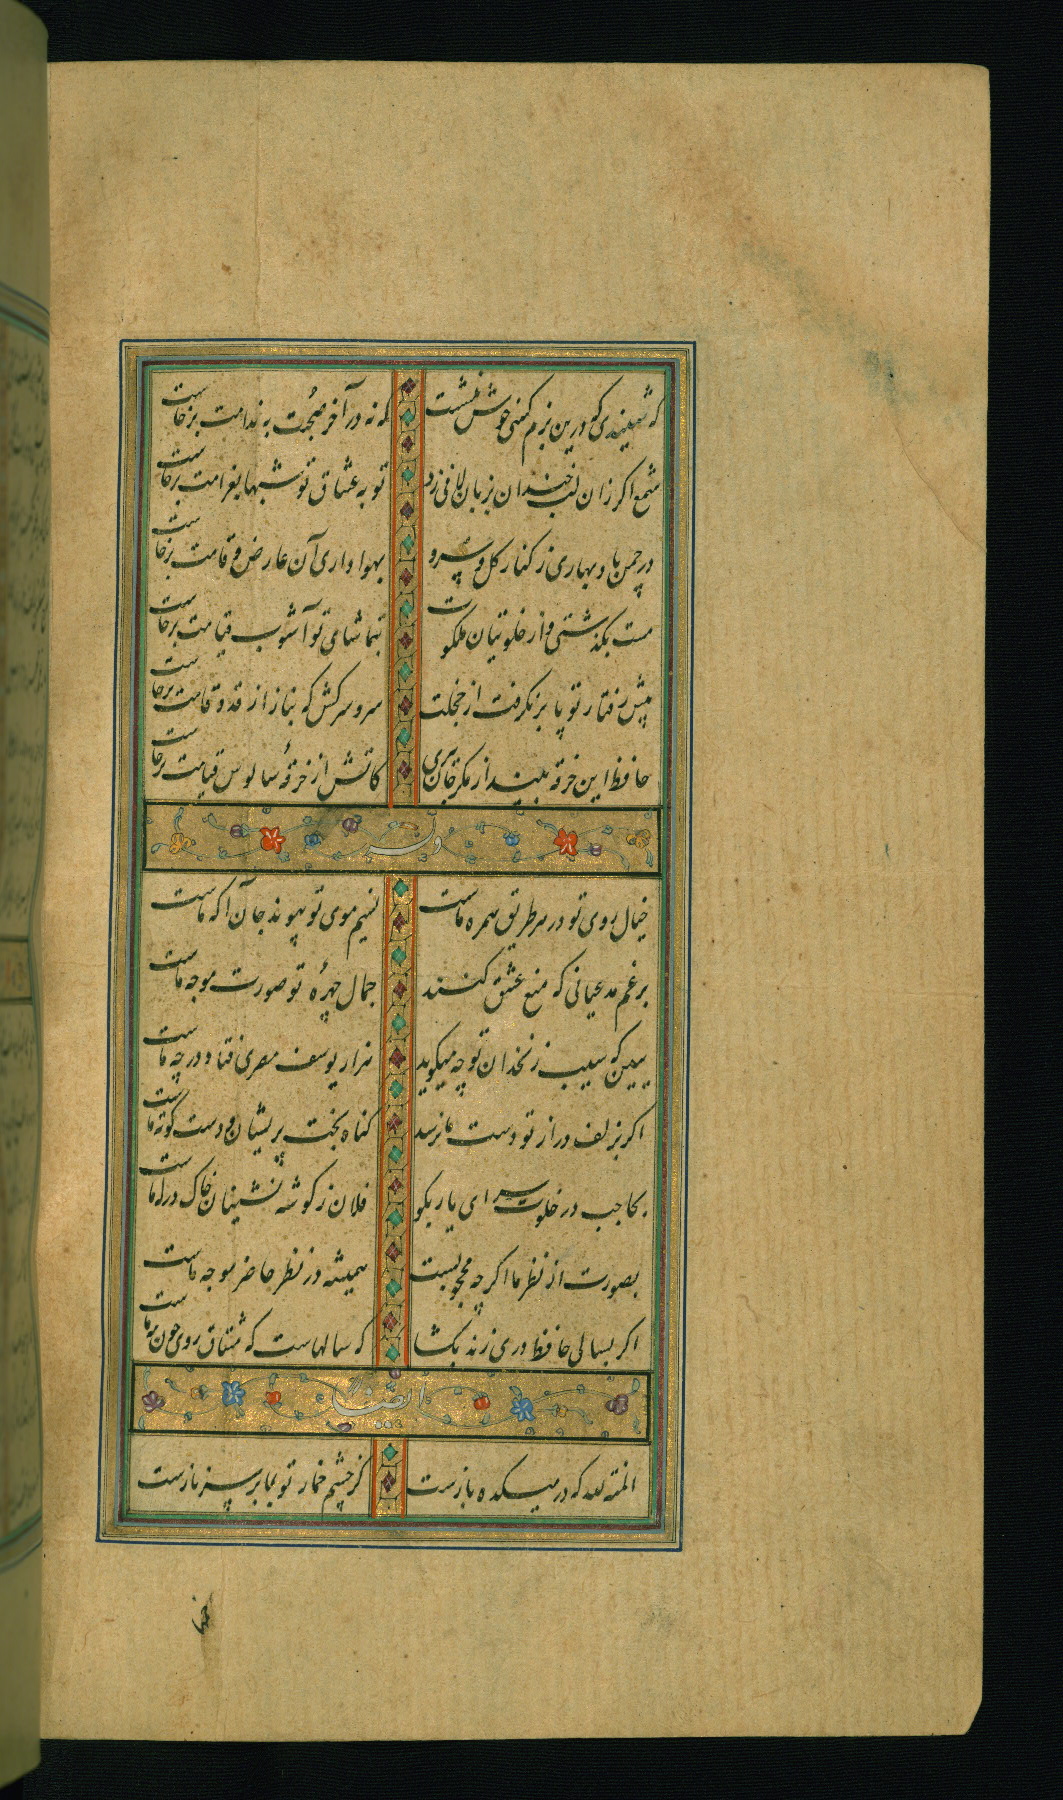 که شنیدی که درین بزم کمی خوش بنشست که نه در آخر صحبت به ندامت برخاست
شمع اگر زان لب خندان بزبان لافی زد تو به عشاق تو شبها بغرامت برخاست
در چمن باد بهاری ز کنار کل و سرو بهواداری آن عارض و قامت برخاست
مست بکذشتی و از خلوتیان ملکوت بتماشای تو آشوب قیامت برخاست
پیش رفتار تو پا برنکرفت از خجلت سرو سرکش که بناز از قد و قامت برخاست
حافظ این خرقه بینداز مکر جان ببری کاتش از خرقهٔ سالوس قیامت برخاست
وله
خیال روی تو در هر طریق همره ماست نسیم موی تو پیوند جان آکه ماست
برغم مدعیانی که منع عشق کنند جمال چهرهٔ تو صورت موجه ماست
ببین که سیب زنخدان تو چه میکوید هزار یوسف مصری فتاده در چه ماست
اکر بزلف دراز تو دست ما نرسد کناه بخت پریشان و دست کوته ماست
بحاجب در خلوت سرای یار بکو فلان ز کوشه نشینان خاک دركه ماست
بصورت از نظر ما اکرچه محجوبست همیشه در نظر حاضر موجه ماست
اکر بسالی حافظ دری زند بکشا که سالهاست که مشتاق روی چون مه ماست
ایضاً
المنة لله که در میکده بازست کز چشم خمار تو بما بر سر نازست